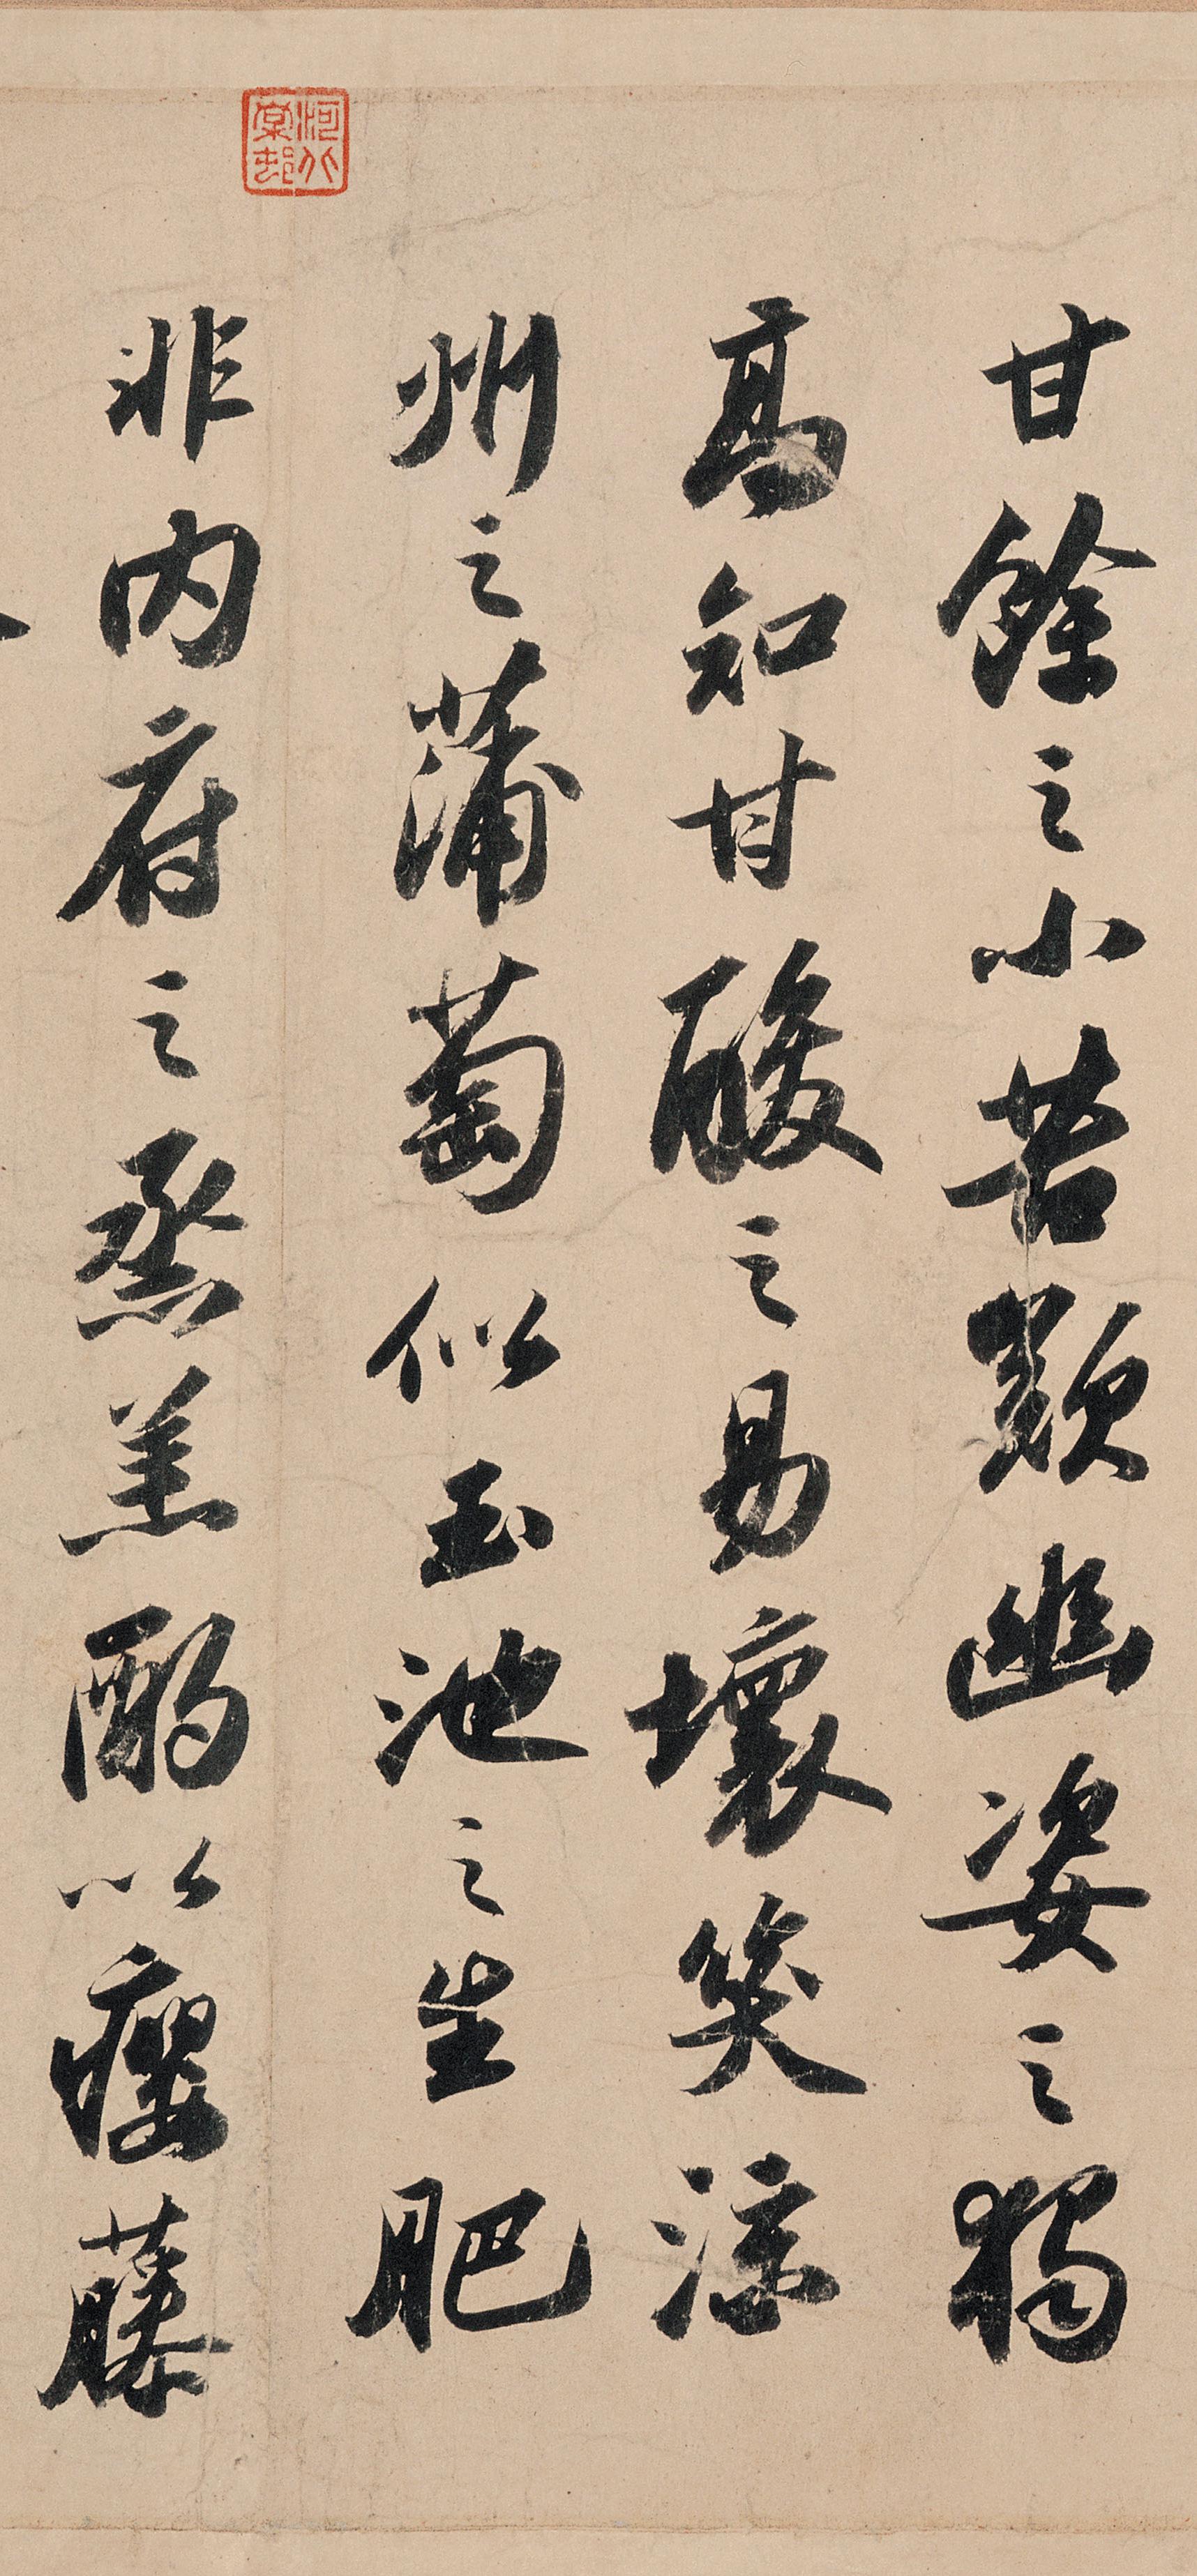 甘餘之小苦歎幽姿之獨
高知甘酸之易壞笑涼
州之蒲萄似玉池之生肥
非内府之烝羔酌以癭藤
河北
棠邨